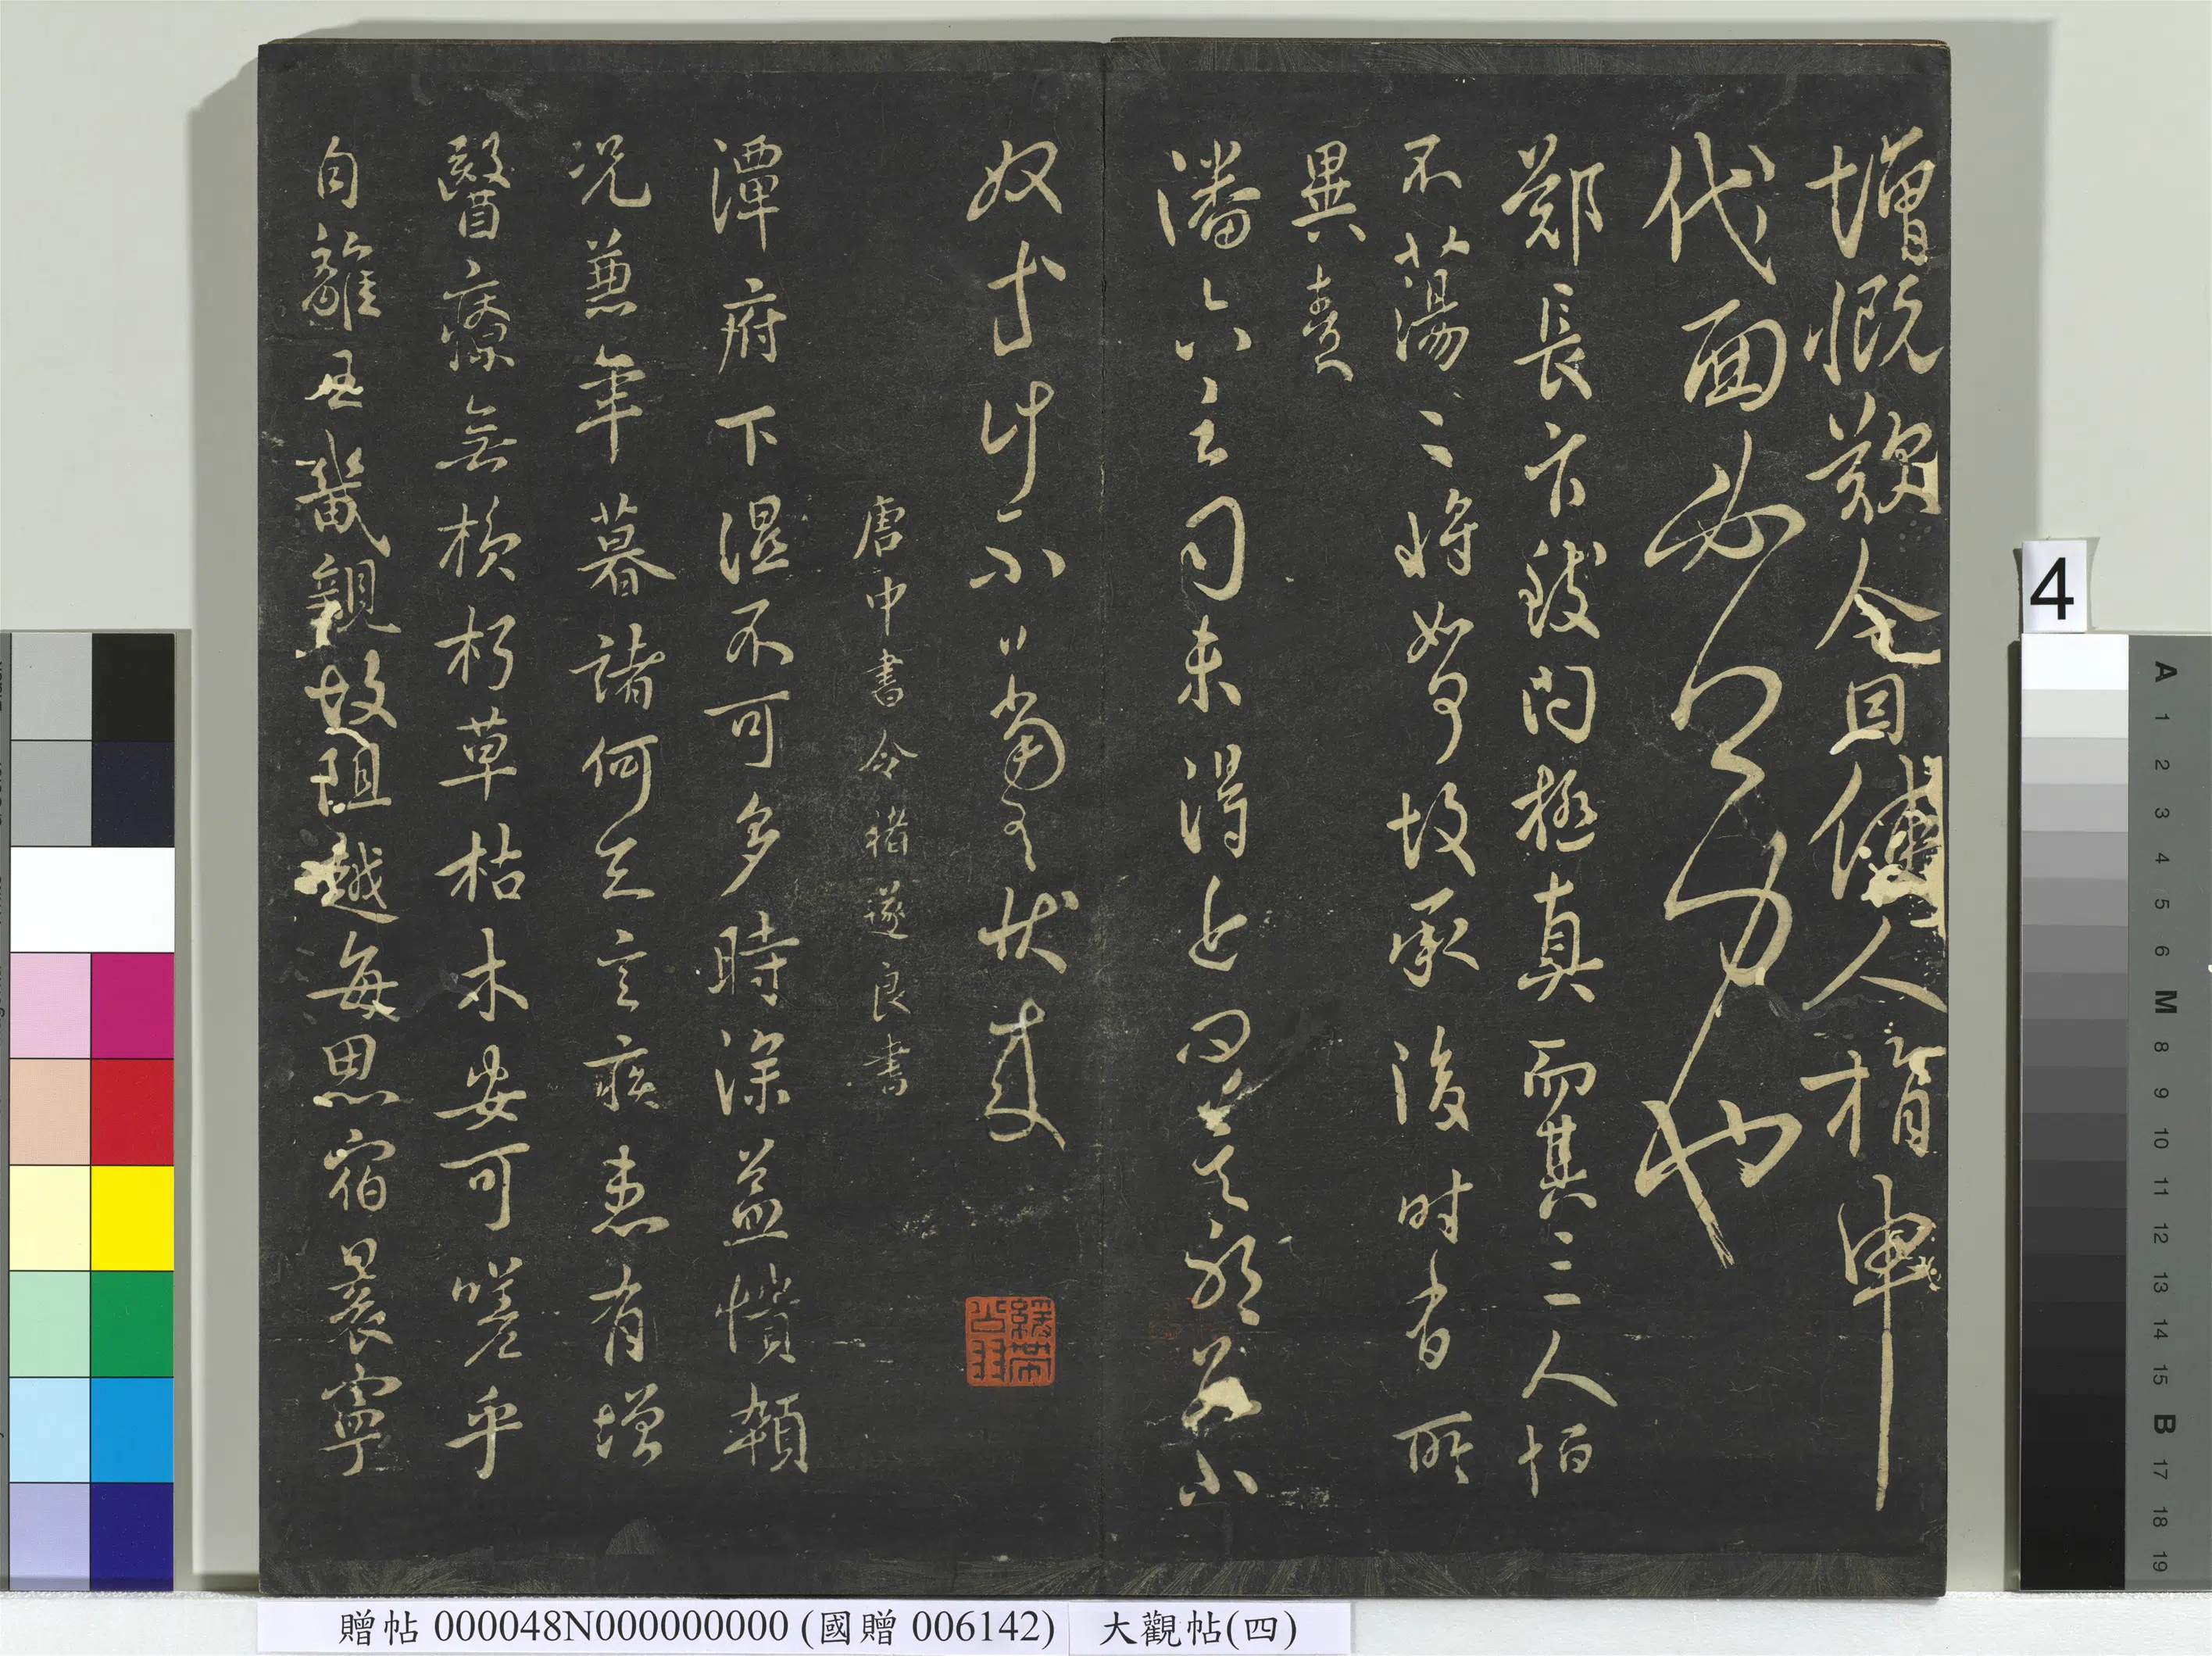 增慨歎今因使人指申
代面必公力也
鄭長六鼓問極真而其三人恒
不蕩蕩將如何故承後時有所
異責
潘六云司未得近問莫不
奴等計不當憂伏
唐中書令褚遂良書
潭府下濕不可多時深益憒頓
況兼年暮諸何足言疾患有增
醫療無損朽草枯木安可嗟乎
自離王畿親故阻越每思宿昔寧
4
A 1 2 3 4 5 6 M 8 9 10 11 12 13 14 15 B 17 18 19
贈帖 000048N000000000 (國贈 006142) 大觀帖(四)